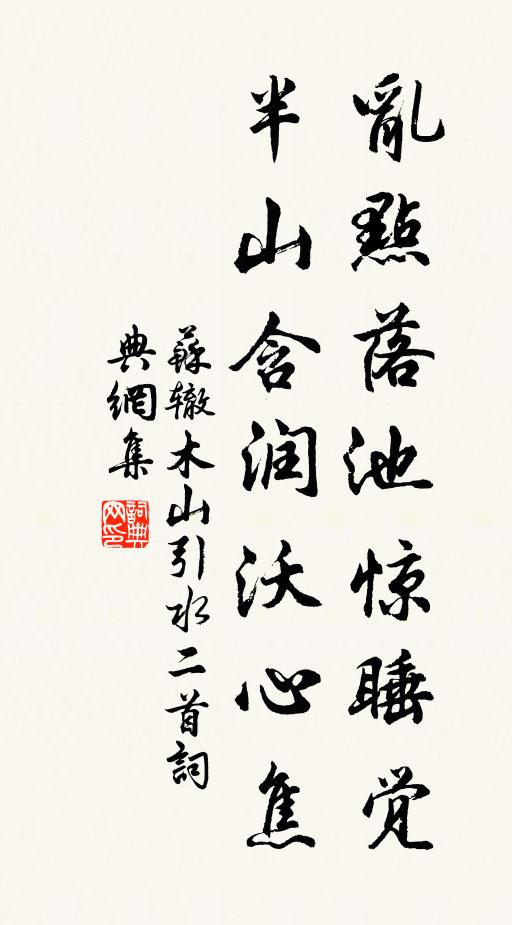 亂點落池惊睡觉
半山含润沃心焦
蘇辙木山引水二首詞
典網集
詞典网印